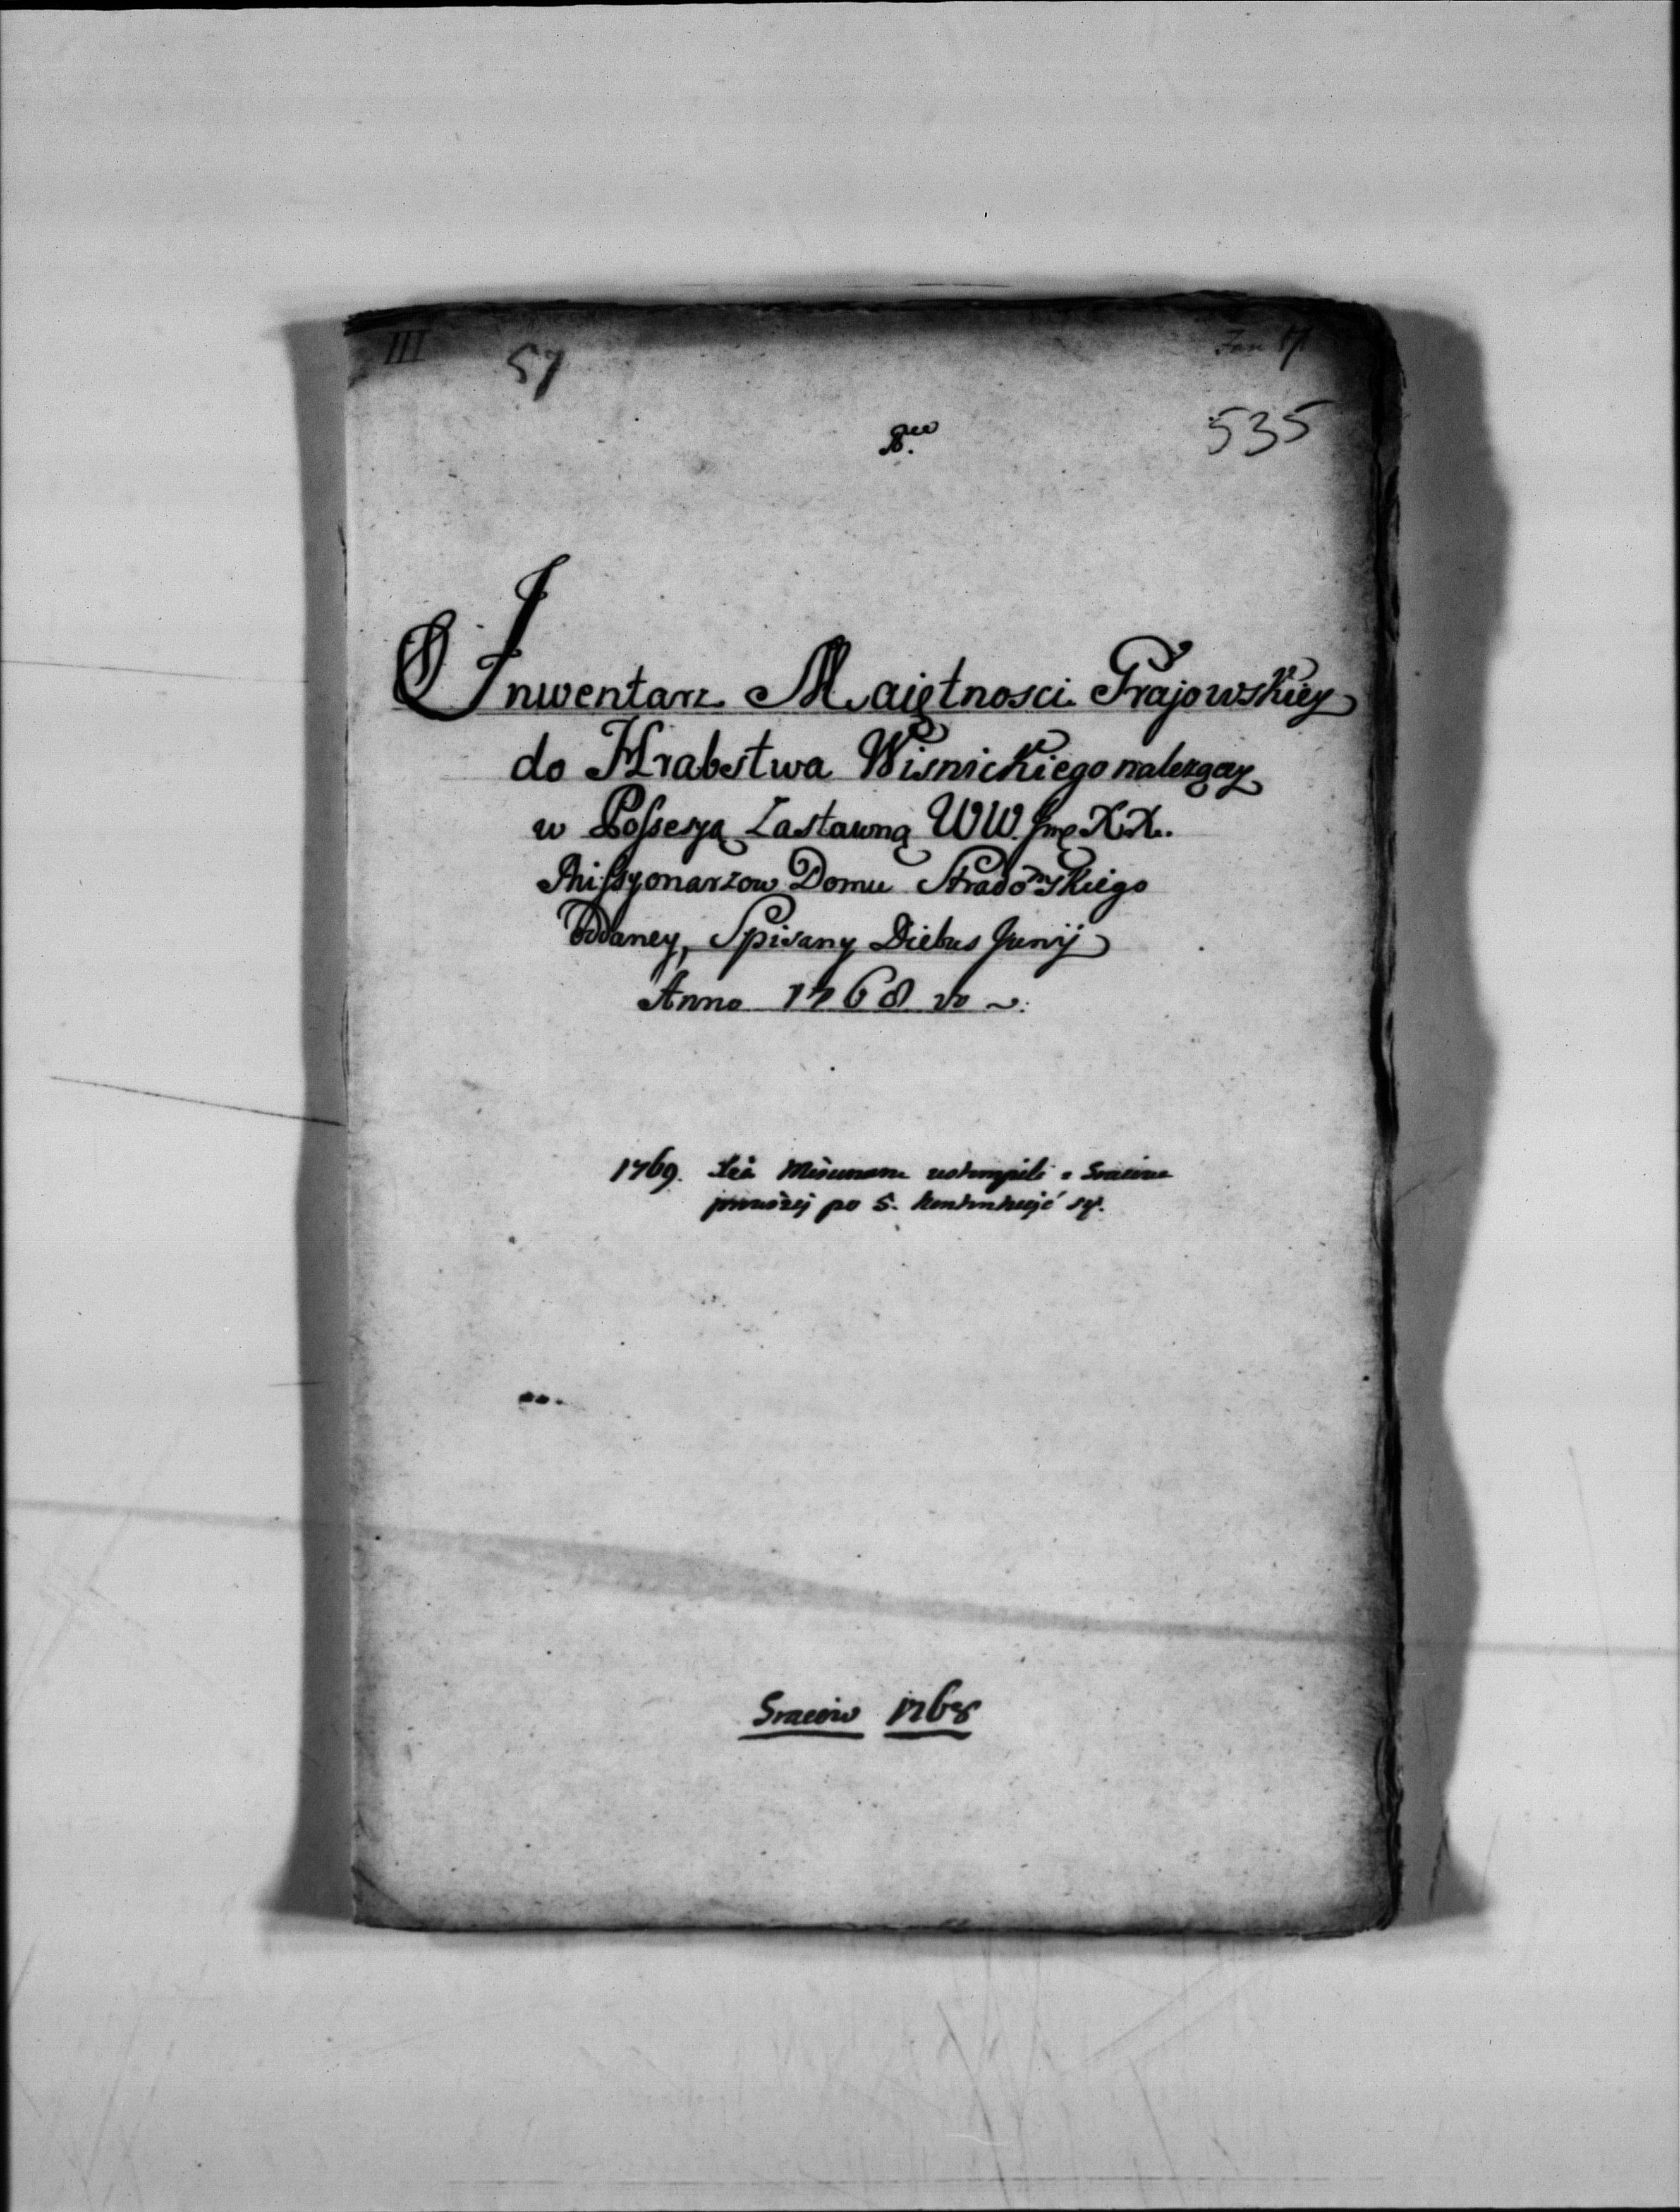 III 57
535
Inwentarz Maiętnosci Grajowskiey
do Hrabstwa Wisnickiego należącey
w Possesyą Zastawną WW. Jmę XX.
Missyonarzow Domu Stradomskiego
Oddaney, Spisany Diebus Junij
Anno 1768 vo
1769. ustempili z
po 5.
1768